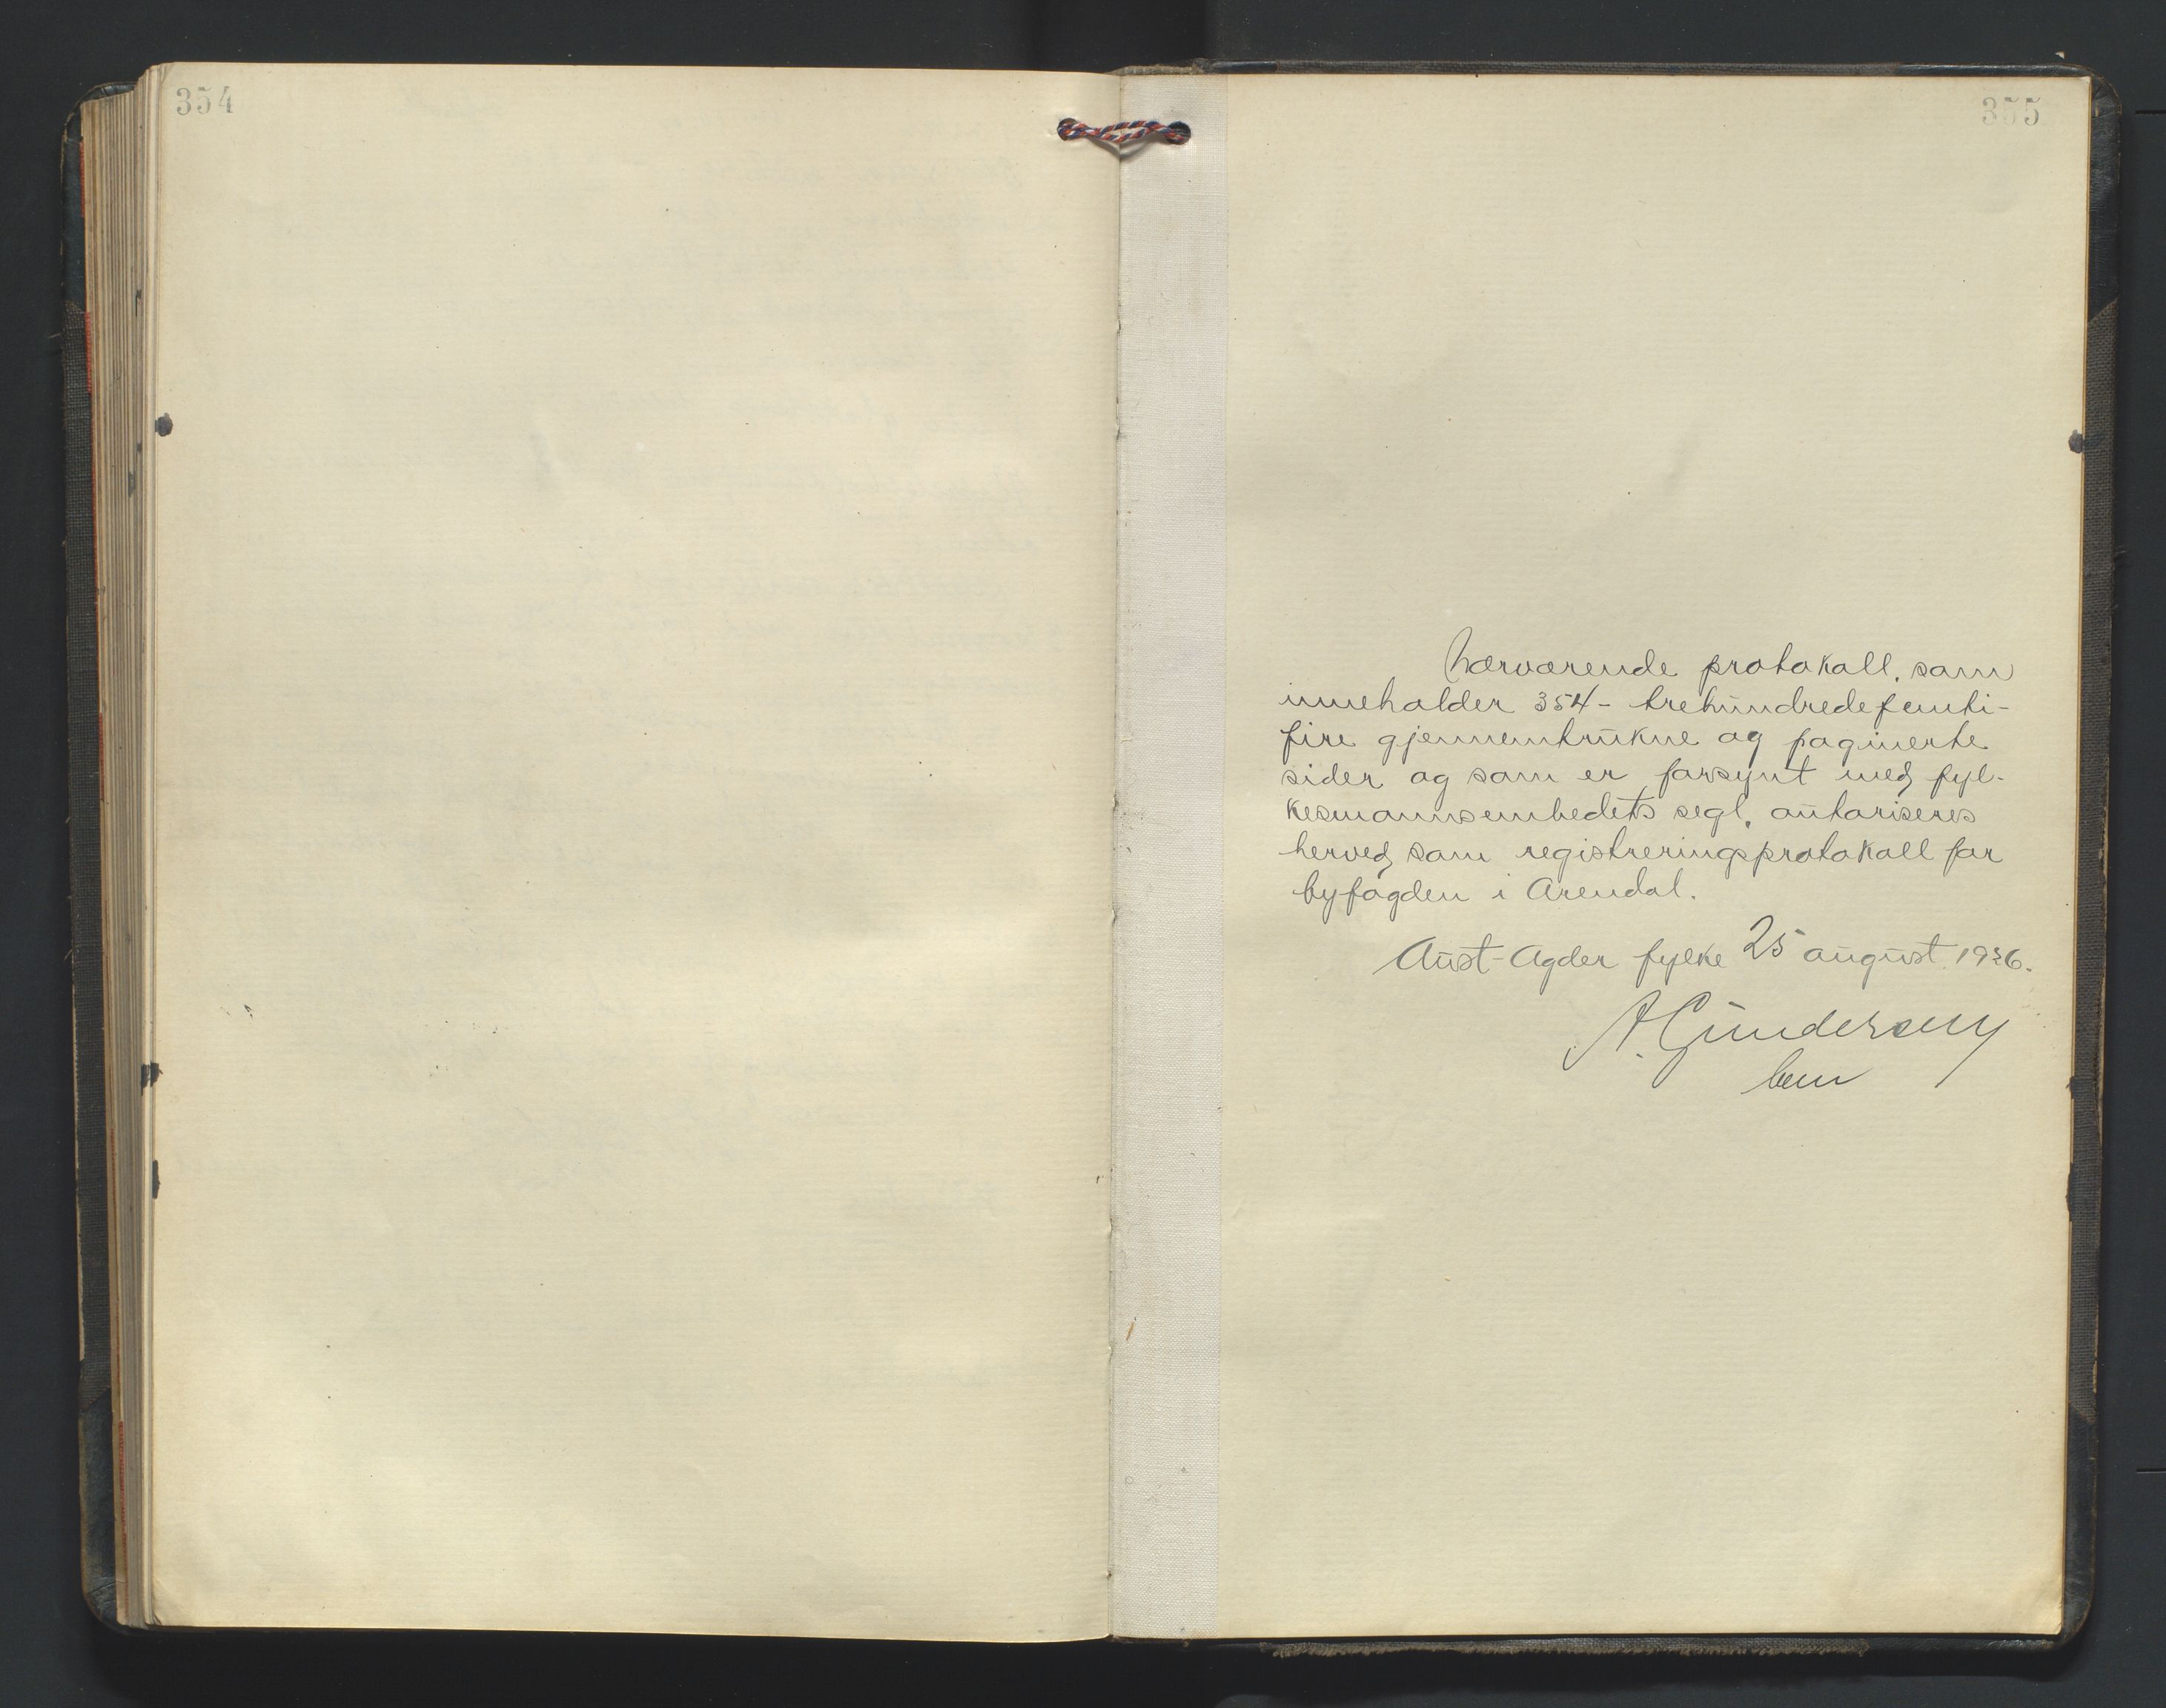 354
355
Nærværende protokoll, som
inneholder 354 - trehundredefemti-
fire gjennemtrukne og paginerte
sider og som er forsynt med fyl-
kesmannsembedets segl, autoriseres
herved som registreringsprotokoll for
byfogden i Arendal.
Aust-Agder fylke 25 august 1936.
A. Gundersen